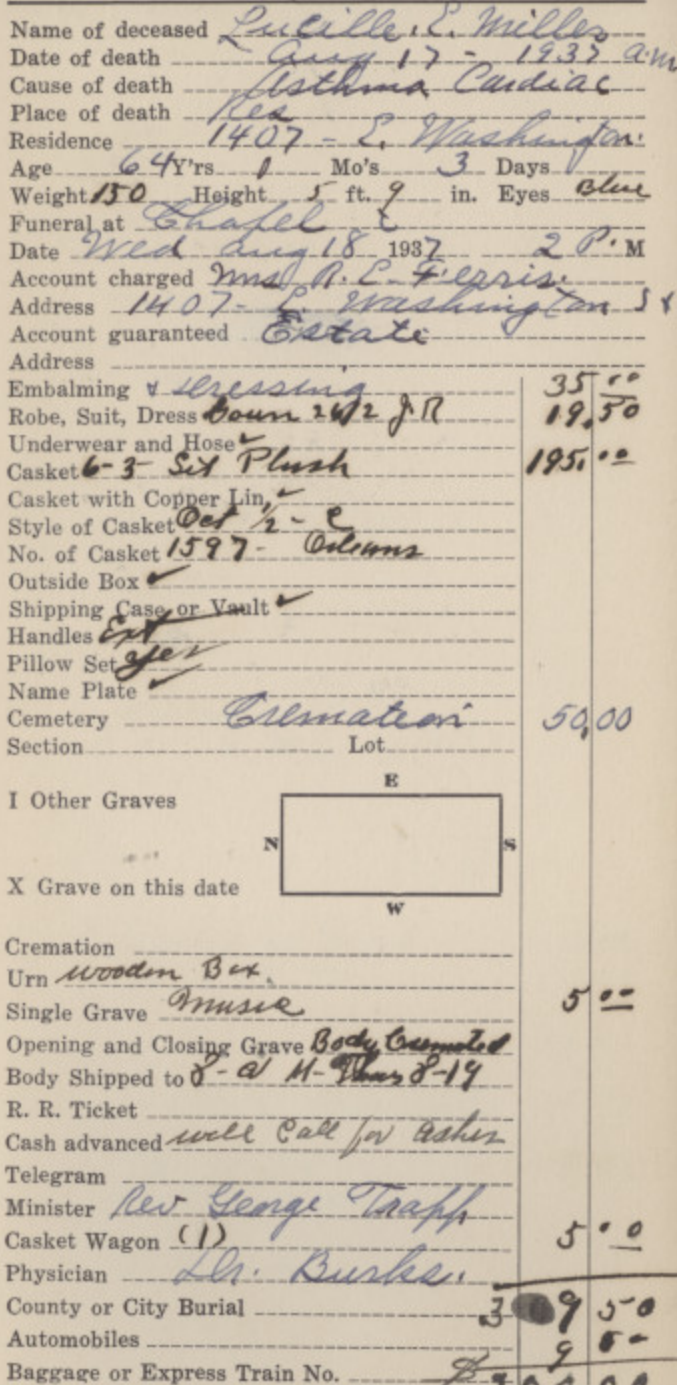 Name of deceased Lucille. E. Miller
Date of death Aug 17 - 1937 a.m
Cause of death Asthma Cardiac
Place of death Res
Residence 1407 - E. Washington.
Age 64 Y'rs. 1 Mo's 3 Days
Weight 150 Height 5 ft. 9 in. Eyes Blue
Funeral at Chapel
Date Wed Aug 18 1937 2 P. M
Account charged Mrs R. E. Ferris.
Address 1407 - E. Washington St
Account guaranteed Estate
Address
Embalming & dressing 35 00
Robe, Suit, Dress Gown 2612 J.R 19.50
Underwear and Hose ✓
Casket 6-3 Sil Plush 195.00
Casket with Copper Lin. ✓
Style of Casket Oct 1/2 - C
No. of Casket 1597 - Orleans
Outside Box ✓
Shipping Case or Vault ✓
Handles Ext
Pillow Set yes
Name Plate ✓
Cemetery Cremation 50,00
Section Lot
E
I Other Graves
N S
X Grave on this date
W
Cremation
Urn wooden Box.
Single Grave Music 5 00
Opening and Closing Grave Body Cremated
Body Shipped to 8- a M- Thurs 8-19
R. R. Ticket
Cash advanced will Call for ashes
Telegram
Minister Rev George Trapp
Casket Wagon (1) 5 00
Physician Dr. Burke.
County or City Burial 309 50
Automobiles 9 50
Baggage or Express Train No. $